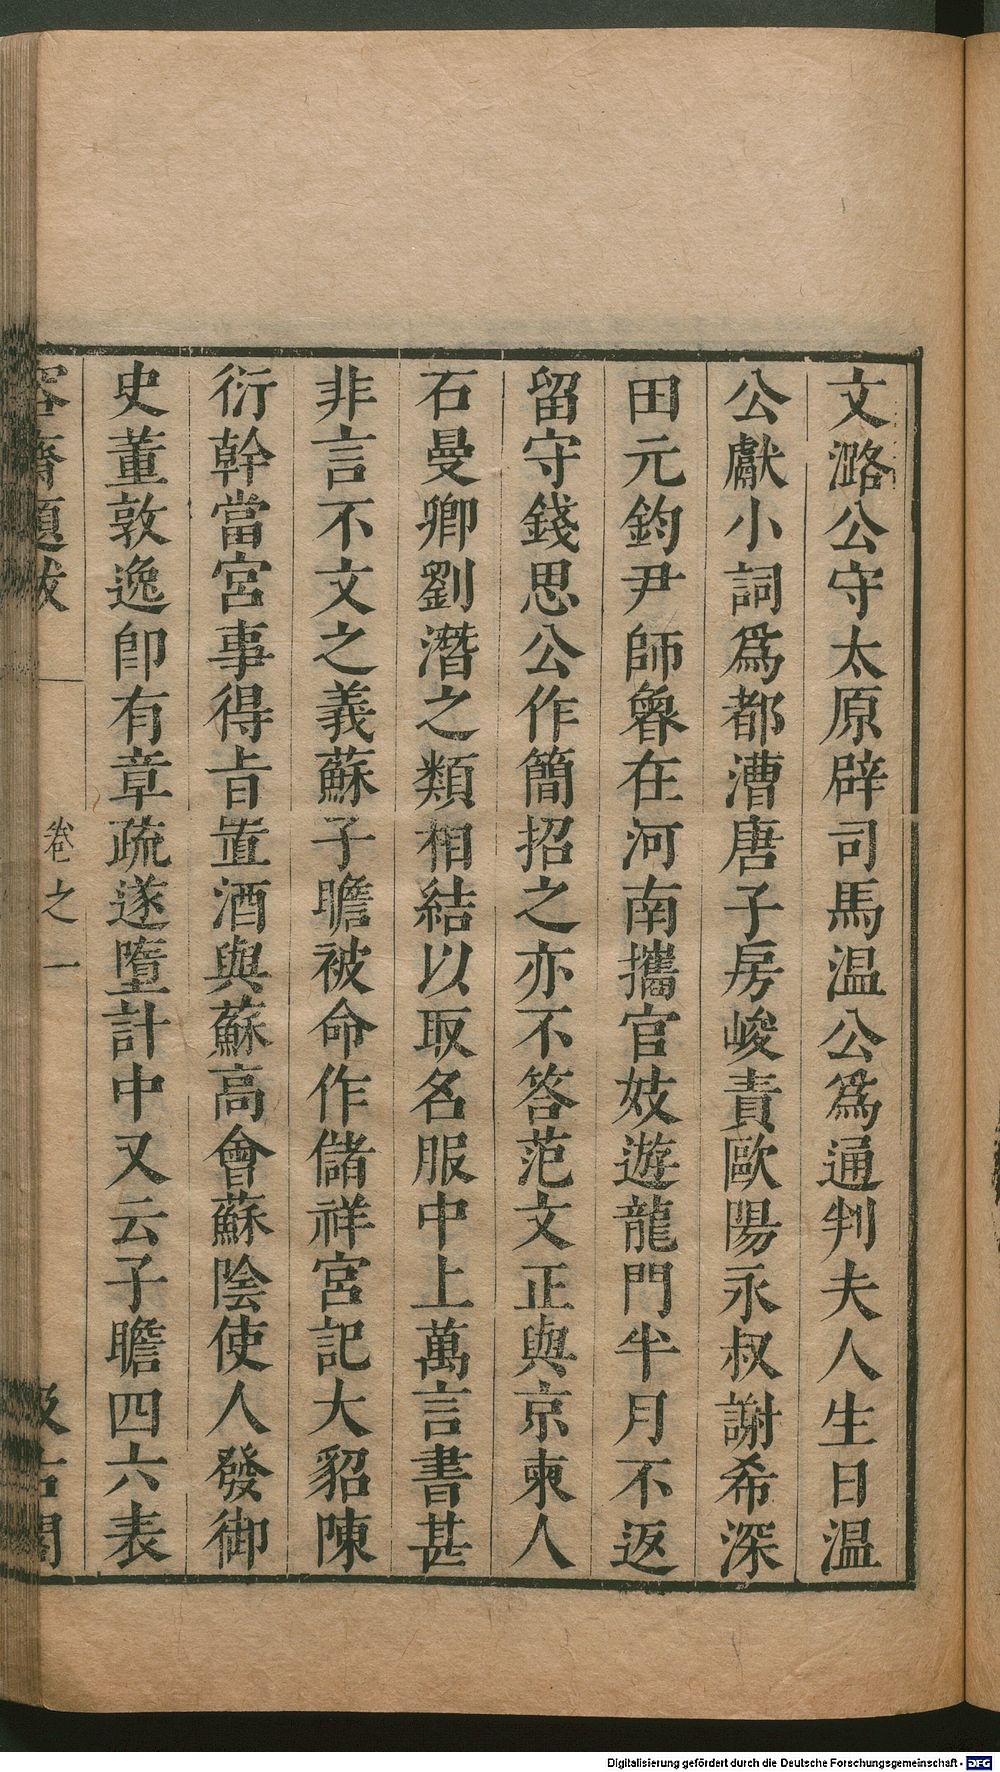 文潞公守太原辟司馬温公爲通判夫人生日温
公獻小詞爲都漕唐子房峻責歐陽永叔謝希深
田元鈞尹師魯在河南攜官妓遊龍門半月不返
留守錢思公作簡招之亦不答范文正與京東人
石曼卿劉潛之類相結以取名服中上萬言書甚
非言不文之義蘇子瞻被命作儲祥宮記大貂陳
衍幹當宮事得旨置酒與蘇高會蘇陰使人發御
史董敦逸卽有章疏遂墮計中又云子瞻四六表
容齋題跋 卷之一 汲古閣
Digitalisierung gefördert durch die Deutsche Forschungsgemeinschaft - DFG